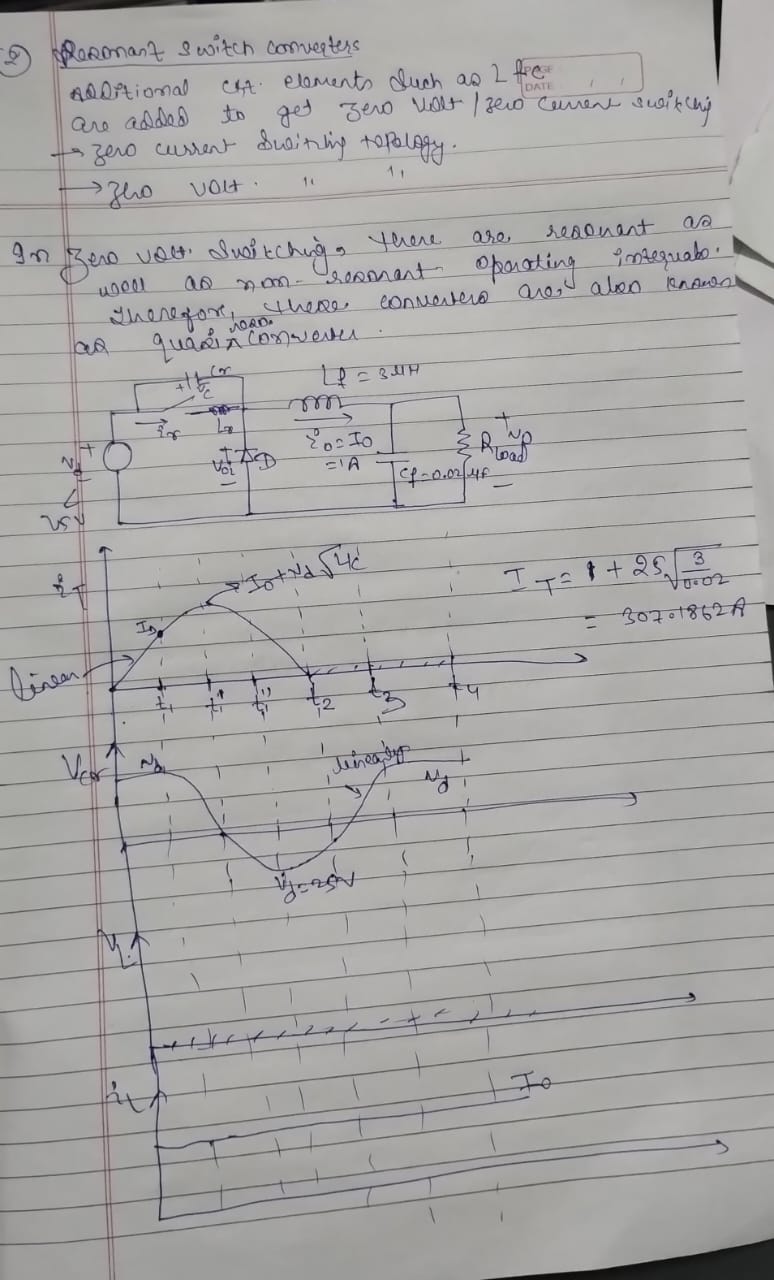 2) Resonant switch converters
PAGE
DATE
Additional ckt. elements such as L & C
are added to get zero volt / zero current switching
→ zero current switching topology.
→ zero volt. " "
In zero volt. switching, there are resonant as
well as non-resonant operating
Therefore, these converters are also known
as quasi reson. converter.
Cr
+ Vc
Lf = 3 μH
ir
Lr
Vd +
-
25V
+ Voi -
D
i0 = I0
= 1A
Cf = 0.02 μF
Rload
+ V0 -
iT
I0
I0 + Vd √4c
linear
IT = 1 + 25 √3/0.02
= 307.1862 A
t1 t1' t1'' t2 t3 t4
Vcr
Vd
linearly
Vd
Vd = 25V
VL
iL
I0